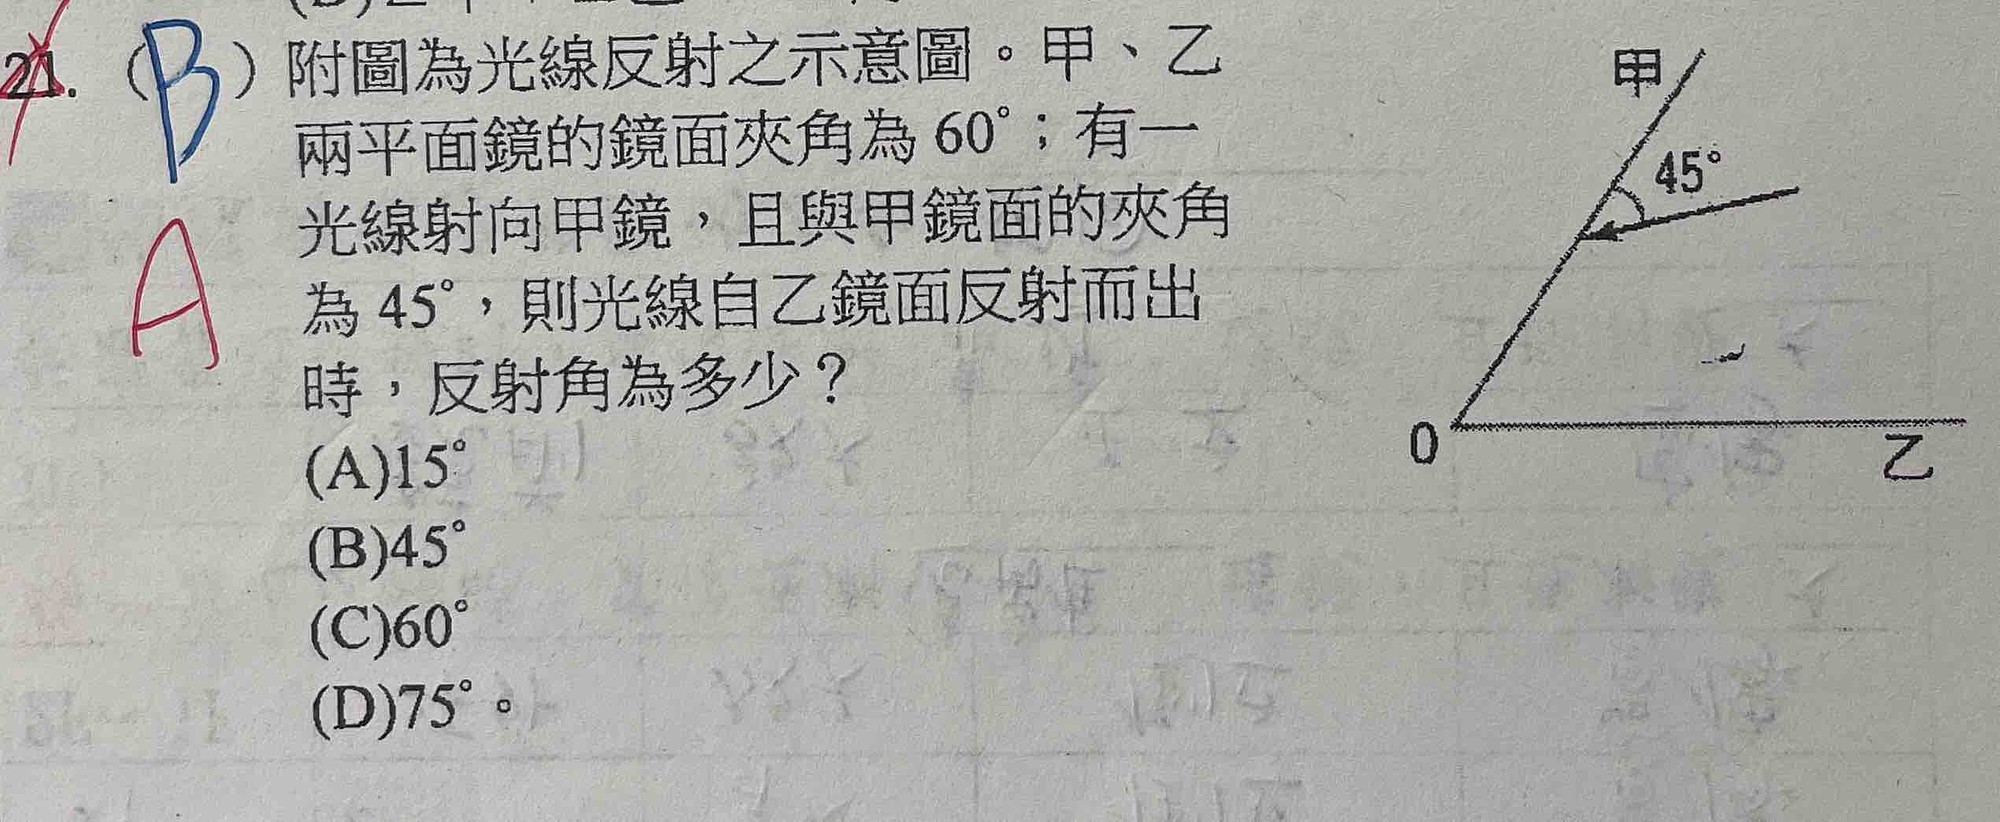 21. (B) 附圖為光線反射之示意圖。甲、乙
兩平面鏡的鏡面夾角為 60°；有一
光線射向甲鏡，且與甲鏡面的夾角
為 45°，則光線自乙鏡面反射而出
時，反射角為多少？
A
(A)15°
(B)45°
(C)60°
(D)75°。
甲
45°
O
乙